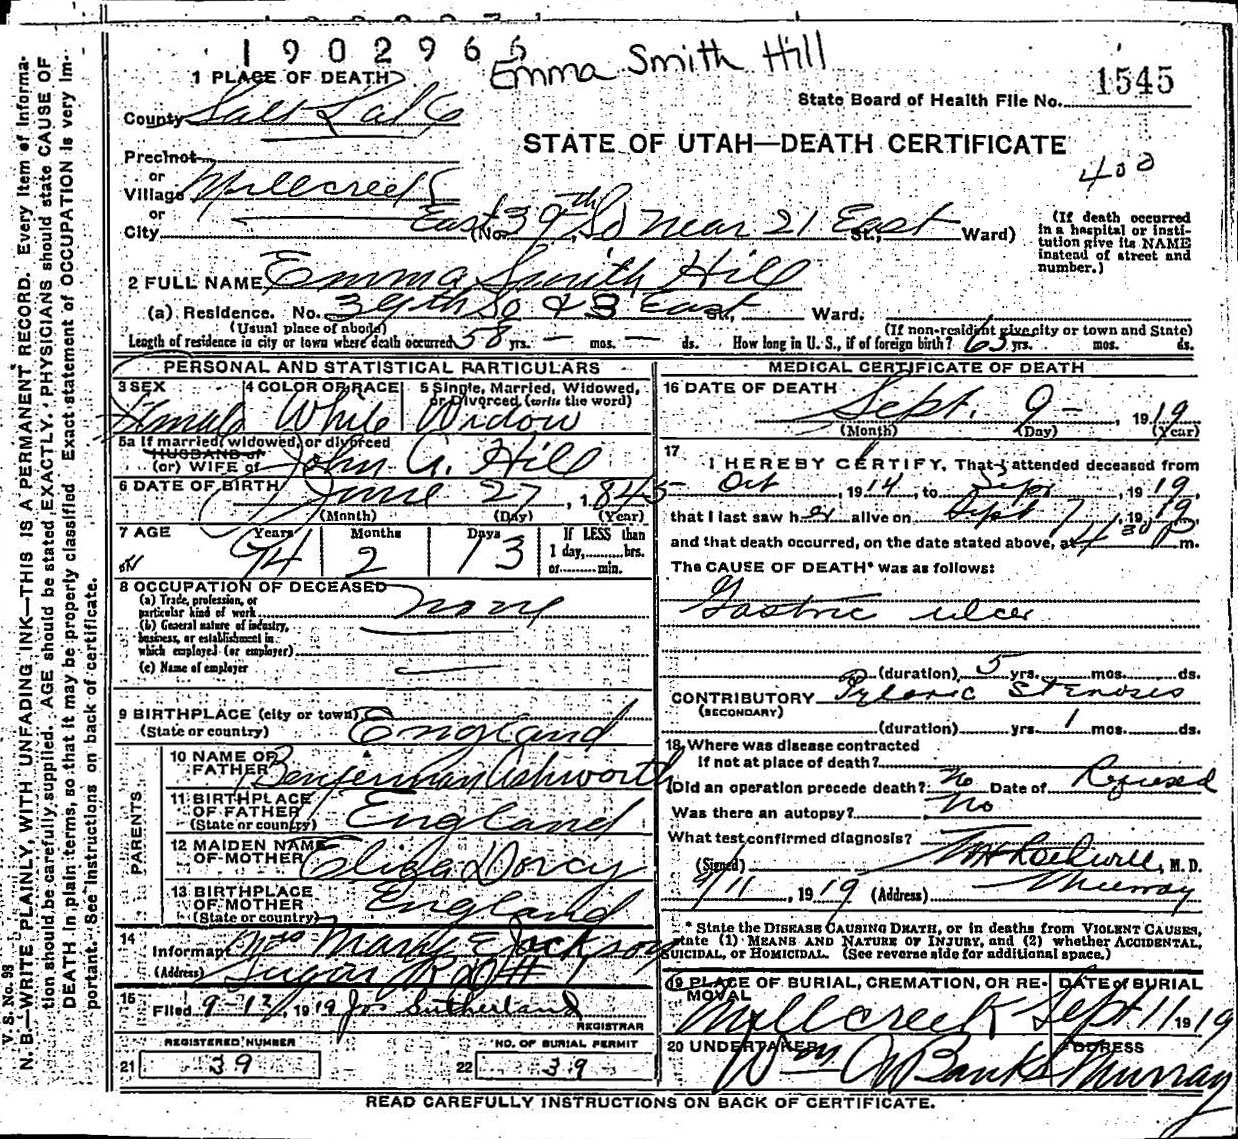 1902966
Emma Smith Hill
1 PLACE OF DEATH
State Board of Health File No. 1545
County Salt Lake
STATE OF UTAH—DEATH CERTIFICATE
400
Precinct
or
Village Millcreek
or
City (No. East 39th So near 21 East St., Ward)
(If death occurred in a hospital or institution give its NAME instead of street and number.)
2 FULL NAME Emma Smith Hill
(a) Residence. No. 39th So & 23 East St., Ward.
(Usual place of abode) (If non-resident give city or town and State)
Length of residence in city or town where death occurred 58 yrs. — mos. — ds. How long in U. S., if of foreign birth? 65 yrs. mos. ds.
PERSONAL AND STATISTICAL PARTICULARS
3 SEX Female
4 COLOR OR RACE White
5 Single, Married, Widowed, or Divorced (write the word) Widow
5a If married, widowed, or divorced
HUSBAND of
(or) WIFE of John G. Hill
6 DATE OF BIRTH June 27, 1845
(Month) (Day) (Year)
7 AGE Years 74 Months 2 Days 13
If LESS than 1 day, hrs. or min.
8 OCCUPATION OF DECEASED
(a) Trade, profession, or particular kind of work none
(b) General nature of industry, business, or establishment in which employed (or employer)
(c) Name of employer
9 BIRTHPLACE (city or town)
(State or country) England
PARENTS
10 NAME OF FATHER Benjerman Ashworth
11 BIRTHPLACE OF FATHER (State or country) England
12 MAIDEN NAME OF MOTHER Eliza Dorcy
13 BIRTHPLACE OF MOTHER (State or country) England
14 Informant Mrs Mary E Jackson
(Address) Sugar R D # 1
15 Filed 9-12, 1919 Jos Sutherland
REGISTRAR
REGISTERED NUMBER
21 39
NO. OF BURIAL PERMIT
22 39
MEDICAL CERTIFICATE OF DEATH
16 DATE OF DEATH
Sept. 9-, 1919
(Month) (Day) (Year)
17 I HEREBY CERTIFY, That I attended deceased from
Oct, 1914, to Sept, 1919,
that I last saw her alive on Sept 7, 1919
and that death occurred, on the date stated above, at 4 30 P. m.
The CAUSE OF DEATH* was as follows:
Gastric ulcer
(duration) 5 yrs. mos. ds.
CONTRIBUTORY Pyloric Stenosis
(SECONDARY)
(duration) yrs. 1 mos. ds.
18 Where was disease contracted
If not at place of death?
Did an operation precede death? No Date of Refused
Was there an autopsy? No
What test confirmed diagnosis?
(Signed) Rockwell, M. D.
9/11, 1919 (Address) Murray
* State the DISEASE CAUSING DEATH, or in deaths from VIOLENT CAUSES, state (1) MEANS AND NATURE OF INJURY, and (2) whether ACCIDENTAL, SUICIDAL, or HOMICIDAL. (See reverse side for additional space.)
19 PLACE OF BURIAL, CREMATION, OR REMOVAL Millcreek
DATE of BURIAL Sept 11 1919
20 UNDERTAKER Wm Banks
ADDRESS Murray
READ CAREFULLY INSTRUCTIONS ON BACK OF CERTIFICATE.
V. S. No. 98
N. B.—WRITE PLAINLY, WITH UNFADING INK—THIS IS A PERMANENT RECORD. Every item of information should be carefully supplied. AGE should be stated EXACTLY. PHYSICIANS should state CAUSE OF DEATH in plain terms, so that it may be properly classified. Exact statement of OCCUPATION is very important. See instructions on back of certificate.